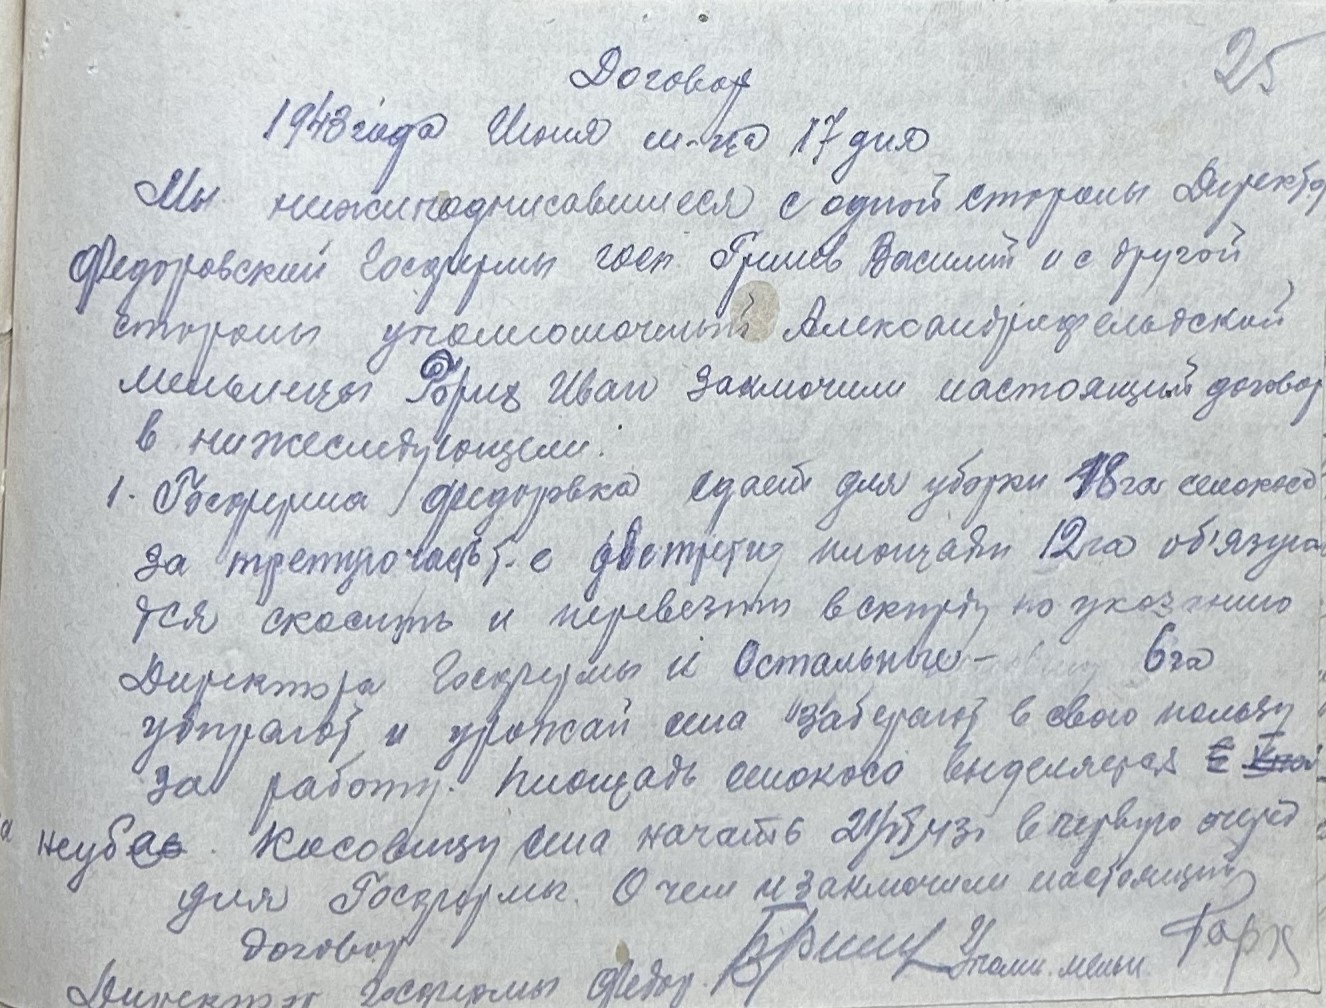 25
Договор
1943 года Июня м-ца 17 дня
Мы нижиподписавшиеся с одной стороны Директор
Федоровский Госфермы госп. Василий и с другой
стороны уполномочный Александрфельдской
мельницы Иван заключили настоящий договор
в нижеследующем:
1. Госферма Федоровка сдает для уборки 18 га сенокоса
за третую часть. с площади 12 га об'язую
тся скосить и перевезти в скирду по указанию
Директора Госфермы и Остальные - 6 га
убирают и урожай сена заберают в свою пользу
за работу. Площадь сенокоса выделяется
Косовицу сена начать 21/VI 43 в первую очередь
для Госфермы. О чем и заключили настоящий
договор
Директор Госфермы Федор. Уполн. мельн.